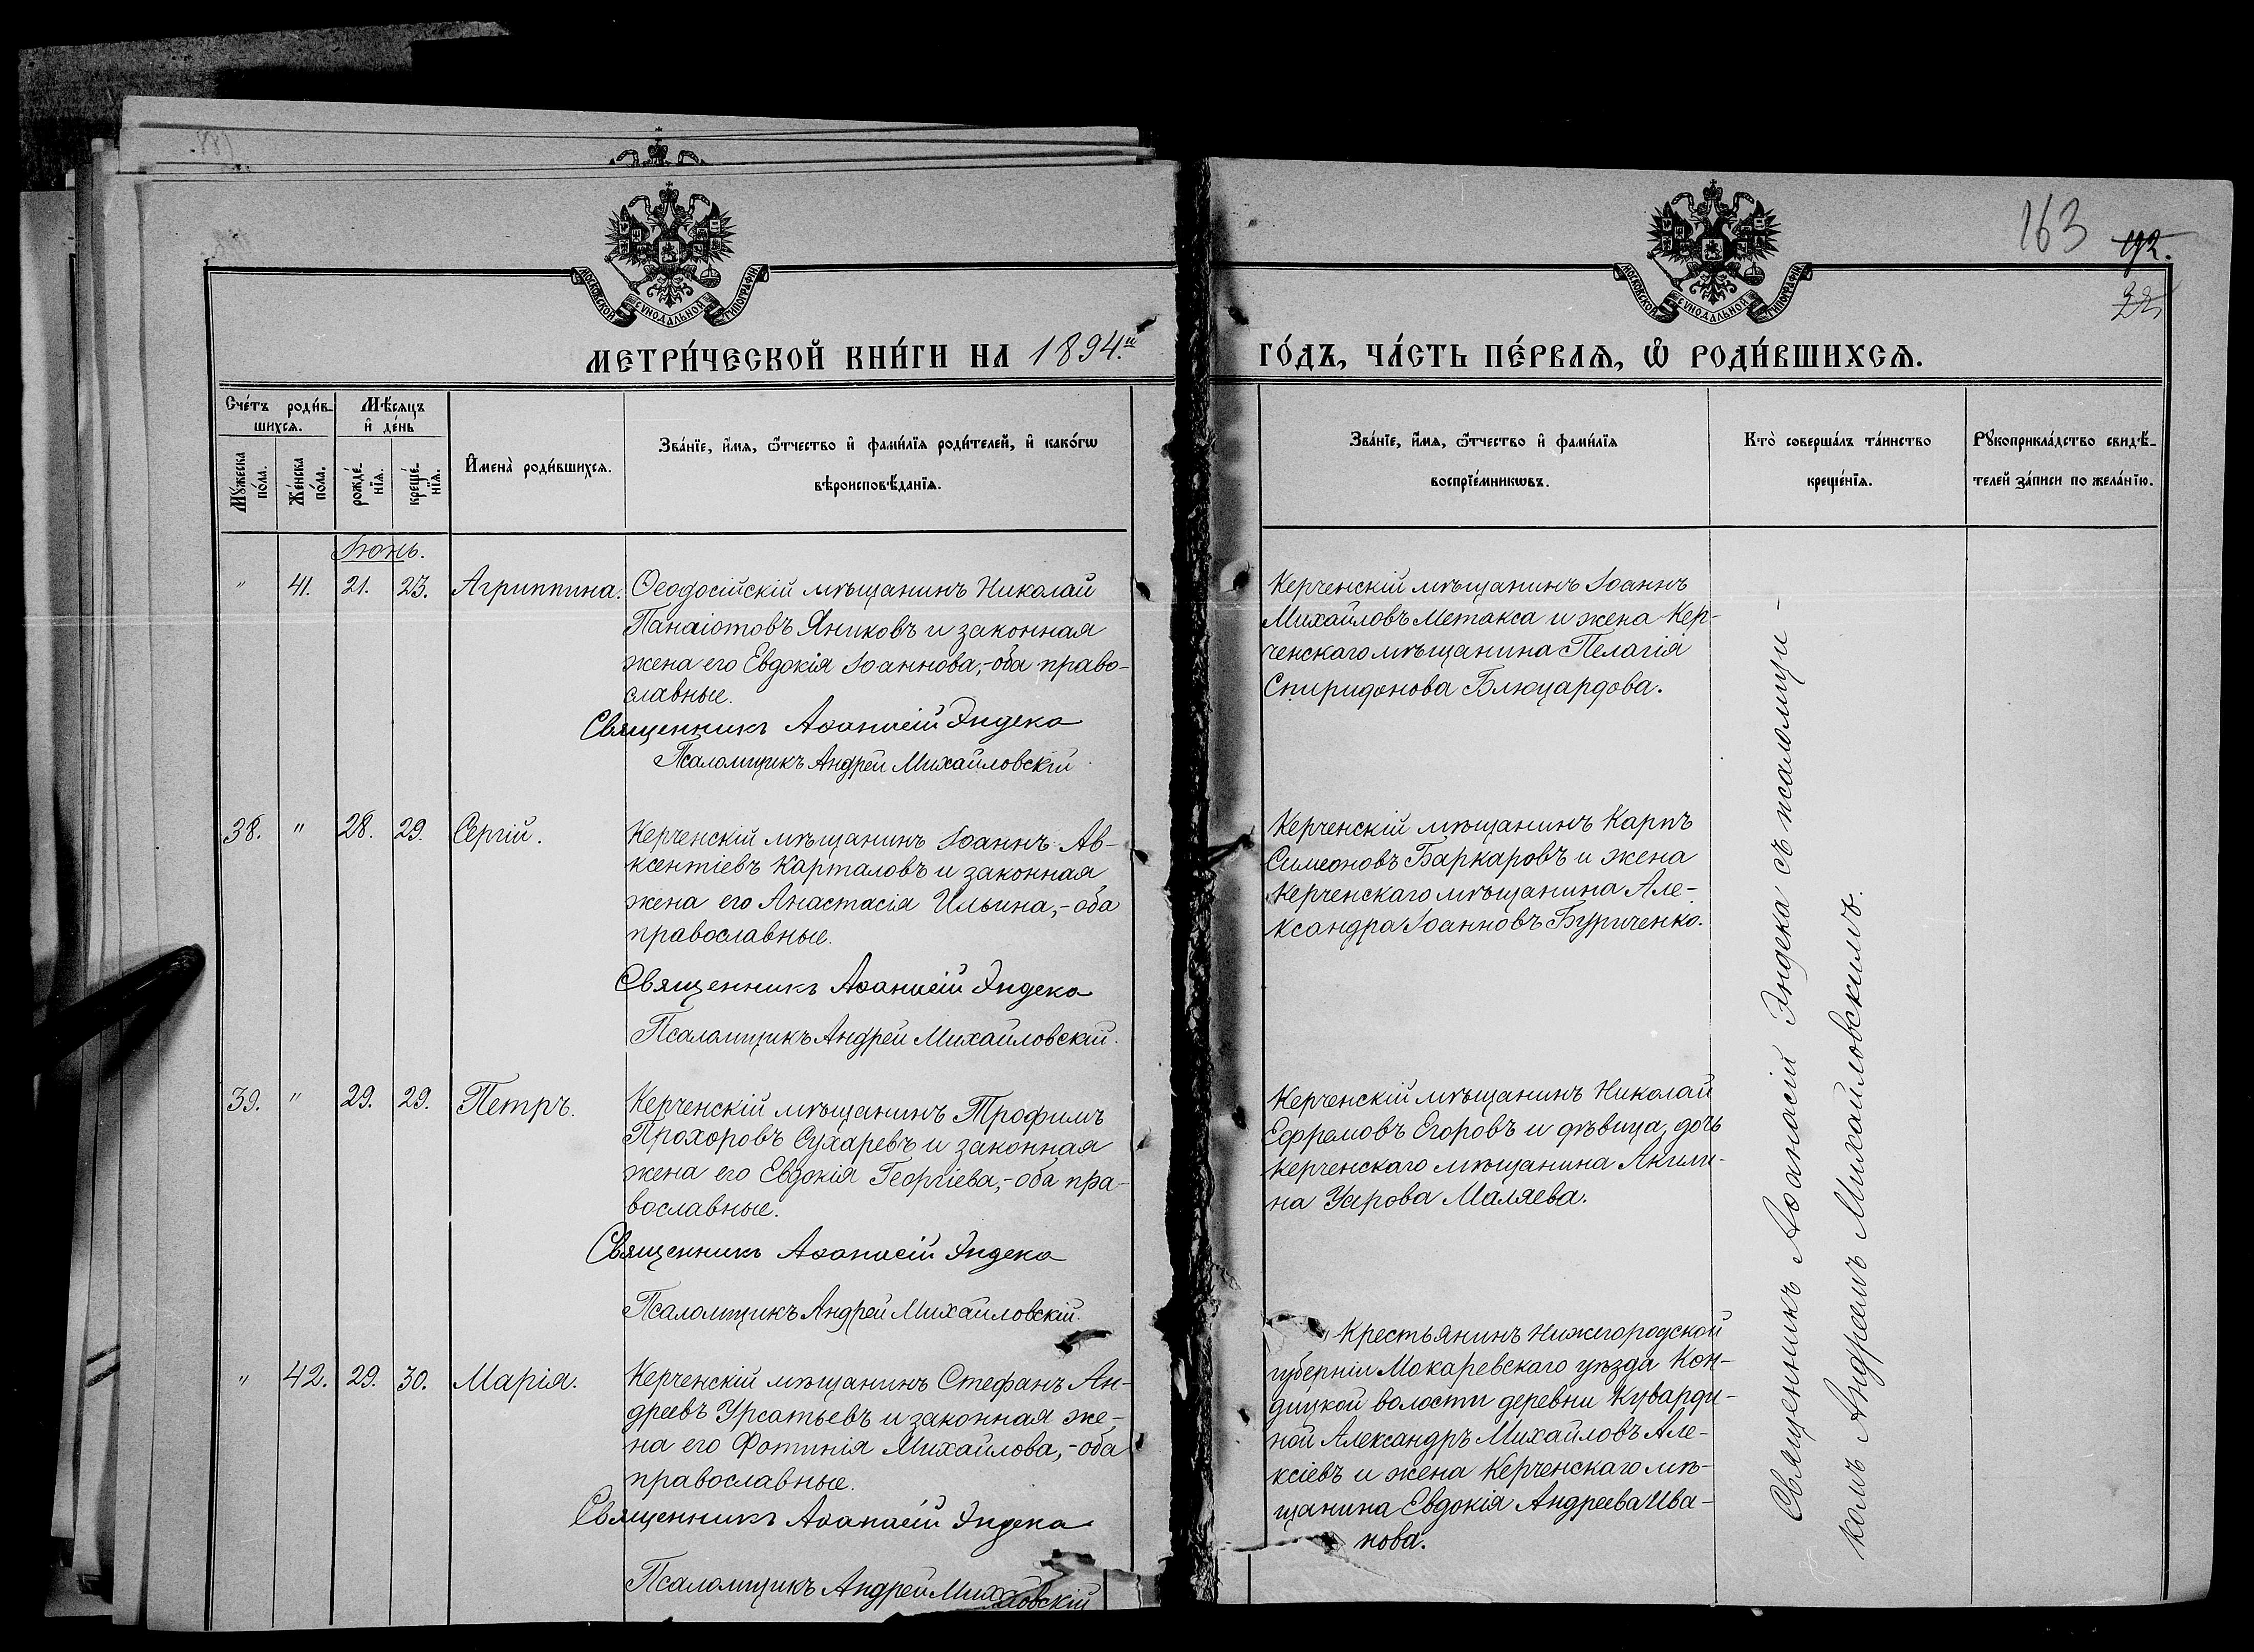 163 192.
МОСКОВСКОЙ СУНОДАЛЬНОЙ ТИПОГРАФІИ
МОСКОВСКОЙ СУНОДАЛЬНОЙ ТИПОГРАФІИ
МЕТРИ́ЧЕСКОЙ КНИ́ГИ НА 1894.й
ГО́ДЪ, ЧА́СТЬ ПЕ́РВАѦ, Ѡ҆ РОДИ́ВШИХСѦ.
Сче́тъ роди́в-
шихсѧ.
Мꙋ́жеска по́ла.
Же́нска по́ла.
Мѣ́сѧцъ
и҆ де́нь
рожде́-
нїѧ.
креще́-
нїѧ.
И҆мена̀ роди́вшихсѧ.
Зва́нїе, и҆́мѧ, ѻ҆́тчество и҆ фами́лїѧ роди́телей, и҆ како́гѡ
вѣроисповѣ́данїѧ.
Зва́нїе, и҆́мѧ, ѻ҆́тчество и҆ фами́лїѧ
воспрїе́мникѡвъ.
Кто̀ соверша́лъ та́инство
креще́нїѧ.
Рꙋкоприкла́дство свидѣ́-
телей за́писи по жела́нїю.
Іюнь.
" 41. 21. 23. Агриппина.
Ѳеодосійскій мѣщанинъ Николай
Панаіотовъ Яниковъ и законная
жена его Евдокія Іоаннова,-оба право-
славные.
Священникъ Аѳанасій Эндека
Псаломщикъ Андрей Михайловскій
Керченскій мѣщанинъ Іоаннъ
Михайловъ Метакса и жена Кер-
ченскаго мѣщанина Пелагія
Спиридонова Блюцардова.
38. " 28. 29. Сергій.
Керченскій мѣщанинъ Іоаннъ Ав-
ксентіевъ Карталовъ и законная
жена его Анастасія Ильина,-оба
православные.
Священникъ Аѳанасій Эндека
Псаломщикъ Андрей Михайловскій.
Керченскій мѣщанинъ Карпъ
Симеоновъ Баркаровъ и жена
Керченскаго мѣщанина Але-
ксандра Іоанновъ Бурченко.
39. " 29. 29. Петръ.
Керченскій мѣщанинъ Трофимъ
Прохоровъ Сухаревъ и законная
жена его Евдокія Георгіева,-оба пра-
вославные.
Священникъ Аѳанасій Эндека
Псаломщикъ Андрей Михайловскій.
Керченскій мѣщанинъ Николай
Ефремовъ Егоровъ и дѣвица, дочь
керченскаго мѣщанина Акили-
на Уарова Маляева.
" 42. 29. 30. Марія.
Керченскій мѣщанинъ Стефанъ Ан-
дреевъ Урсатьевъ и законная же-
на его Фотинія Михайлова,-оба
православные.
Священникъ Аѳанасій Эндека
Псаломщикъ Андрей Михайловскій
Крестьянинъ Нижегородской
губерніи Макаревскаго уѣзда Кон-
дицкой волости деревни Куварди-
ной Александръ Михайловъ Але-
ксіевъ и жена Керченскаго мѣ-
щанина Евдокія Андреева Ива-
нова.
Священникъ Аѳанасій Эндека съ псаломщи-
комъ Андреемъ Михайловскимъ.